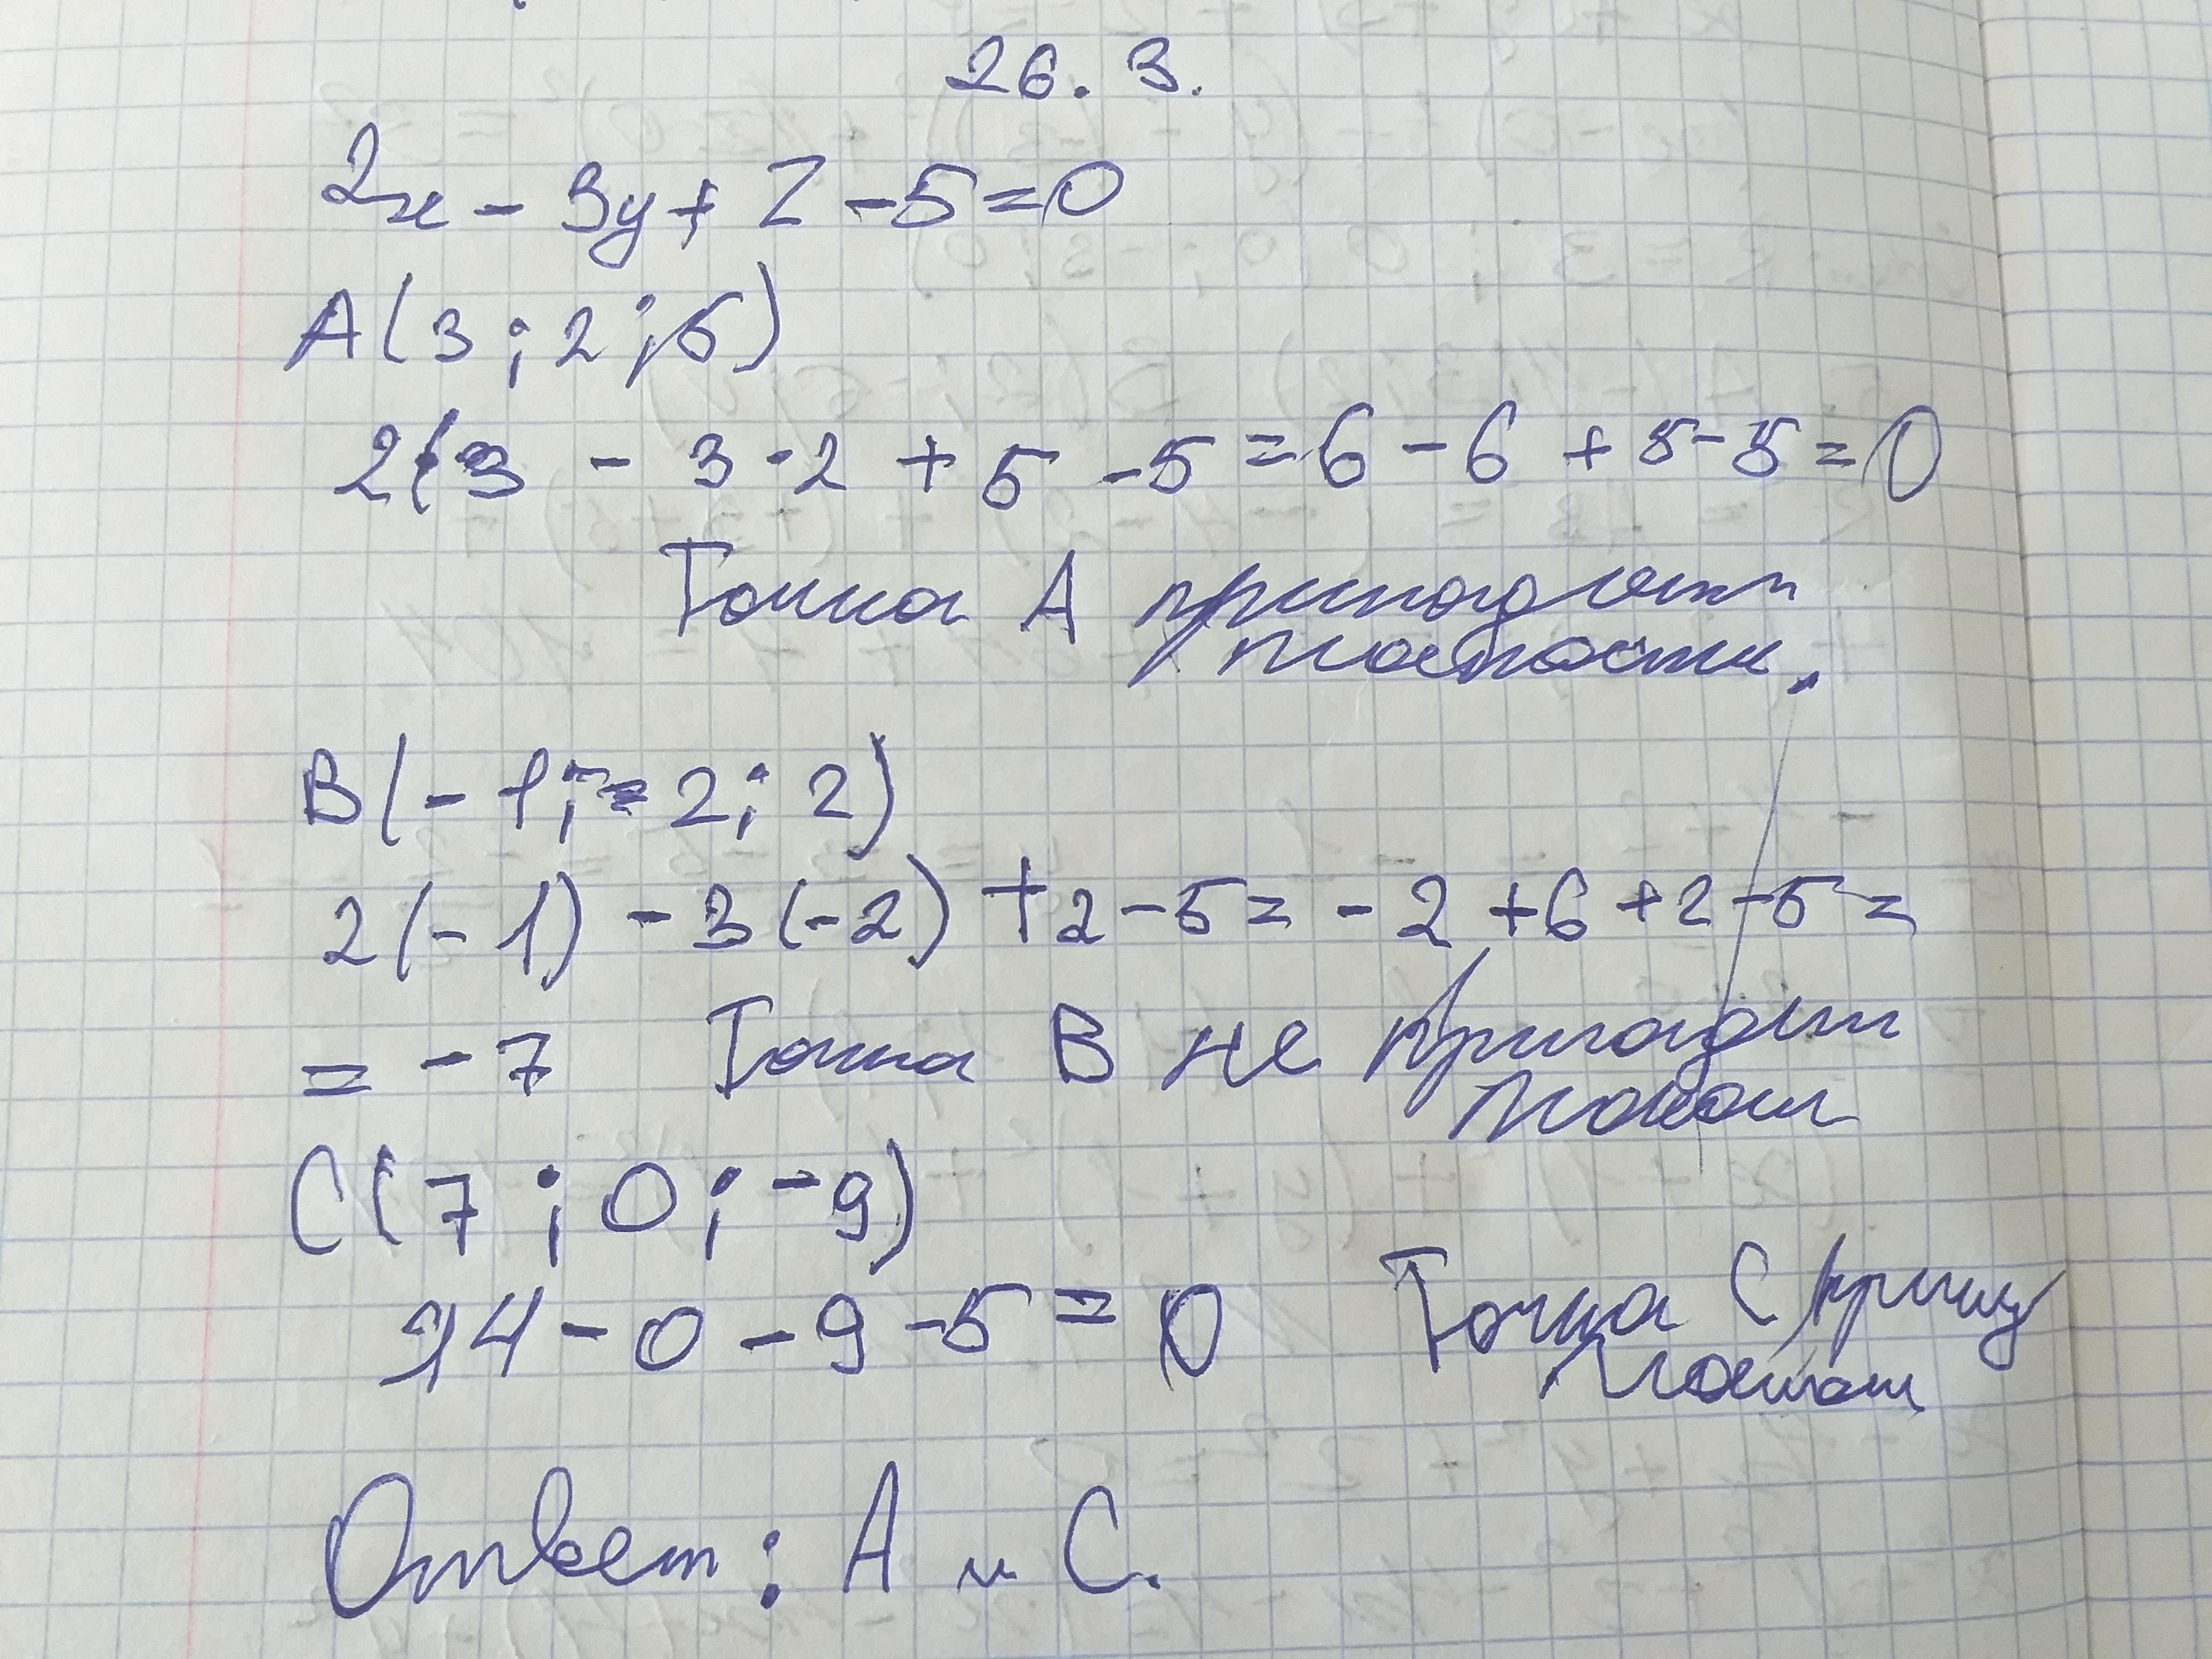 26.3.
2x - 3y + z - 5 = 0
A(3; 2; 5)
2·3 - 3·2 + 5 - 5 = 6 - 6 + 5 - 5 = 0
Точка A
B(-1; -2; 2)
2(-1) - 3(-2) + 2 - 5 = -2 + 6 + 2 - 5 =
= -7 Точка B не
C(7; 0; -9)
14 - 0 - 9 - 5 = 0 Точка C
Ответ: A и C.